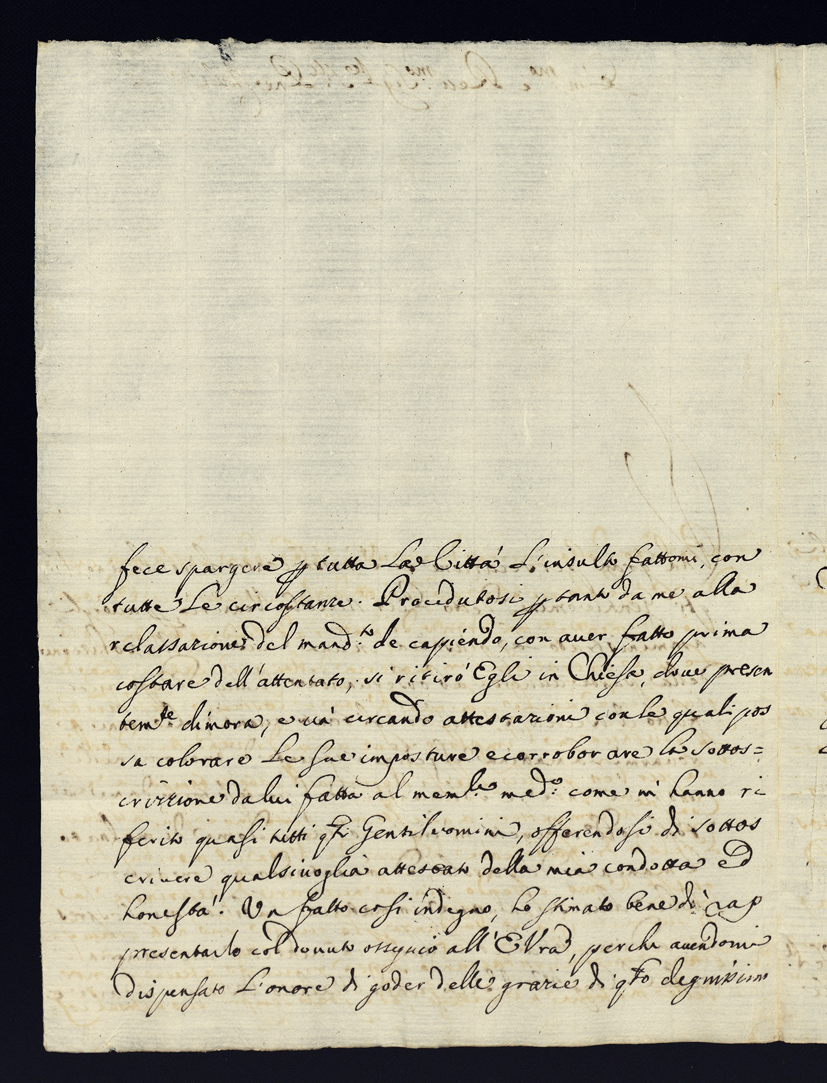 fece spargere p tutta La Città L'insulto fattomi, con
tutte Le circostanze. Procedutosi p tanto da me alla
relassazione del mand.to de capiendo, con aver fatto prima
costare dell'attentato, si ritirò Egli in Chiesa, dove presen
tem.te dimora, e và cercando attestazioni con le quali pos
sa colorare Le sue imposture e corroborare la sottos=
crizzione da lui fatta al mem.le med.o come mi hanno ri
ferito quasi tutti q.ti Gentiluomini, offerendosi di sottos
crivere qualsivoglia attestato della mia condotta ed
honestà. Un fatto così indegno, ho stimato bene di rap
presentarlo col dovuto ossequio all'EVra, perche avendomi
dispensato L'onore di goder delle grazie di q.sto degnissimo